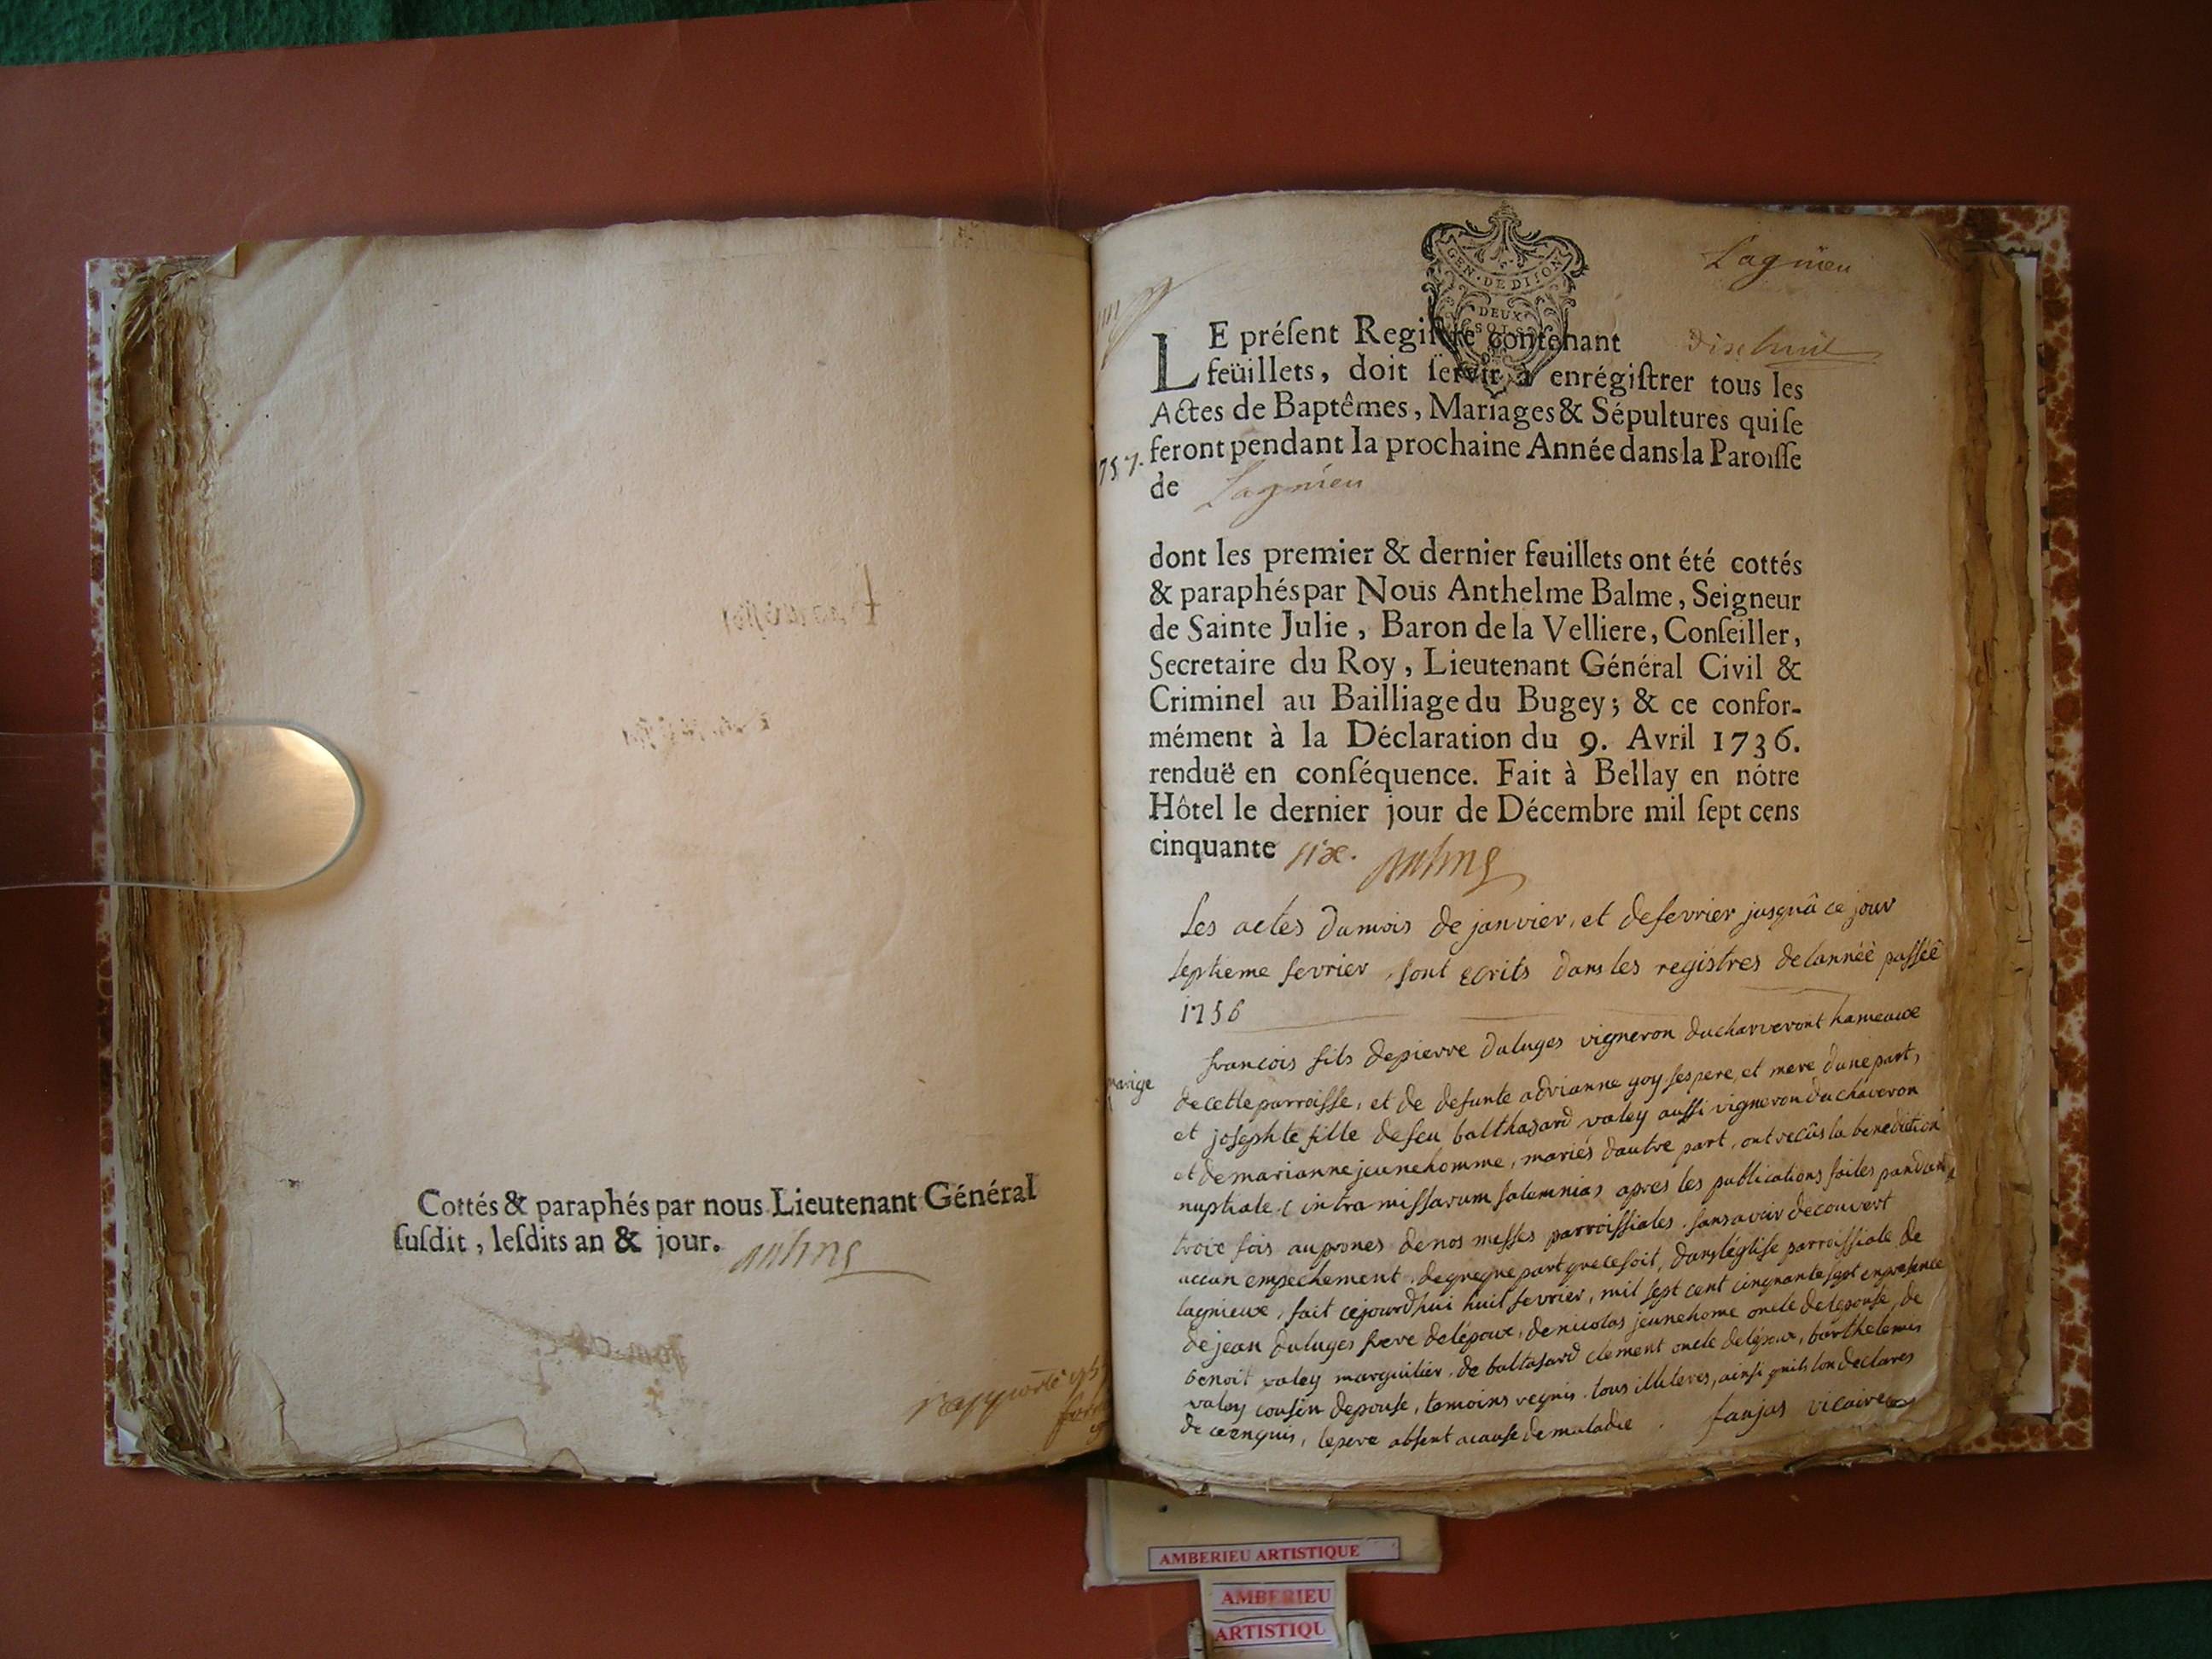 Cottés & paraphés par nous Lieutenant Général
ſuſdit, leſdits an & jour.
rapporté
Lagnieu
GEN · DE DIJON
DEUX
SOLS
LE préſent Regiſtre contenant dixhuit
feüillets, doit ſervir à enrégiſtrer tous les
Actes de Baptêmes, Mariages & Sépultures qui ſe
feront pendant la prochaine Année dans la Paroiſſe
1757.
de Lagnieu
dont les premier & dernier feuillets ont été cottés
& paraphés par Nous Anthelme Balme, Seigneur
de Sainte Julie, Baron de la Velliere, Conſeiller,
Secretaire du Roy, Lieutenant Général Civil &
Criminel au Bailliage du Bugey; & ce confor-
mément à la Déclaration du 9. Avril 1736.
renduë en conſéquence. Fait à Bellay en nôtre
Hôtel le dernier jour de Décembre mil ſept cens
cinquante six.
Les actes du mois de janvier, et de fevrier jusquâ ce jour
septieme fevrier, sont ecrits dans les registres de lannéé passéé
1756
marige
francois fils de pierre duluges vigneron du charveront hameaux
de cette parroisse, et de defunte adrianne goy ses pere, et mere dune part,
et josephte fille de feu balthasard valey aussi vigneron du chaveron
et de marianne jeunehomme, mariés dautre part, ont recûs la benediction
nuptiale intra missarum solemnias apres les publications faites pandant
troix fois au prones de nos messes parroissiales sans avoir decouvert
aucun empechement de queque part que ce soit, dans léglise parroissiale de
lagnieux, fait cejourdhui huit fevrier, mil sept cent cinquante sept en presence
de jean duluges frere de lépoux, de nicolas jeunehome oncle de lepouse, de
benoit valey marguilier, de baltasard clement oncle de lépoux, barthelemis
valey cousin depouse, temoins requis tous illiteres, ainsi quils lon declares
de ce enquis, le pere absent a cause de maladie. faujas vicaire
AMBERIEU ARTISTIQUE
AMBERIEU
ARTISTIQU